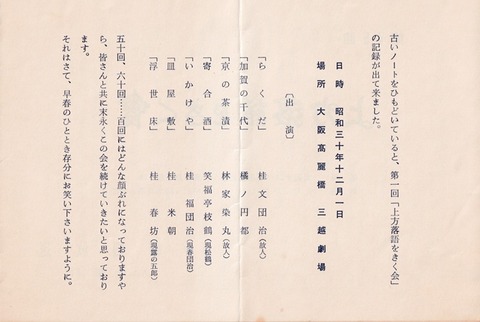 古いノートをひもどいていると、第一回「上方落語をきく会」
の記録が出て来ました。
日時 昭和三十年十二月一日
場所 大阪高麗橋 三越劇場
〔出演〕
「らくだ」 桂文団治(故人)
「加賀の千代」 橘ノ円都
「京の茶漬」 林家染丸(故人)
「寄合酒」 笑福亭枝鶴(現松鶴)
「いかけや」 桂福団治(現春団治)
「皿屋敷」 桂米朝
「浮世床」 桂春坊(現露の五郎)
五十回、六十回……百回にはどんな顔ぶれになっておりますや
ら、皆さんと共に末永くこの会を続けていきたいと思っており
ます。
それはさて、早春のひととき存分にお笑い下さいますように。